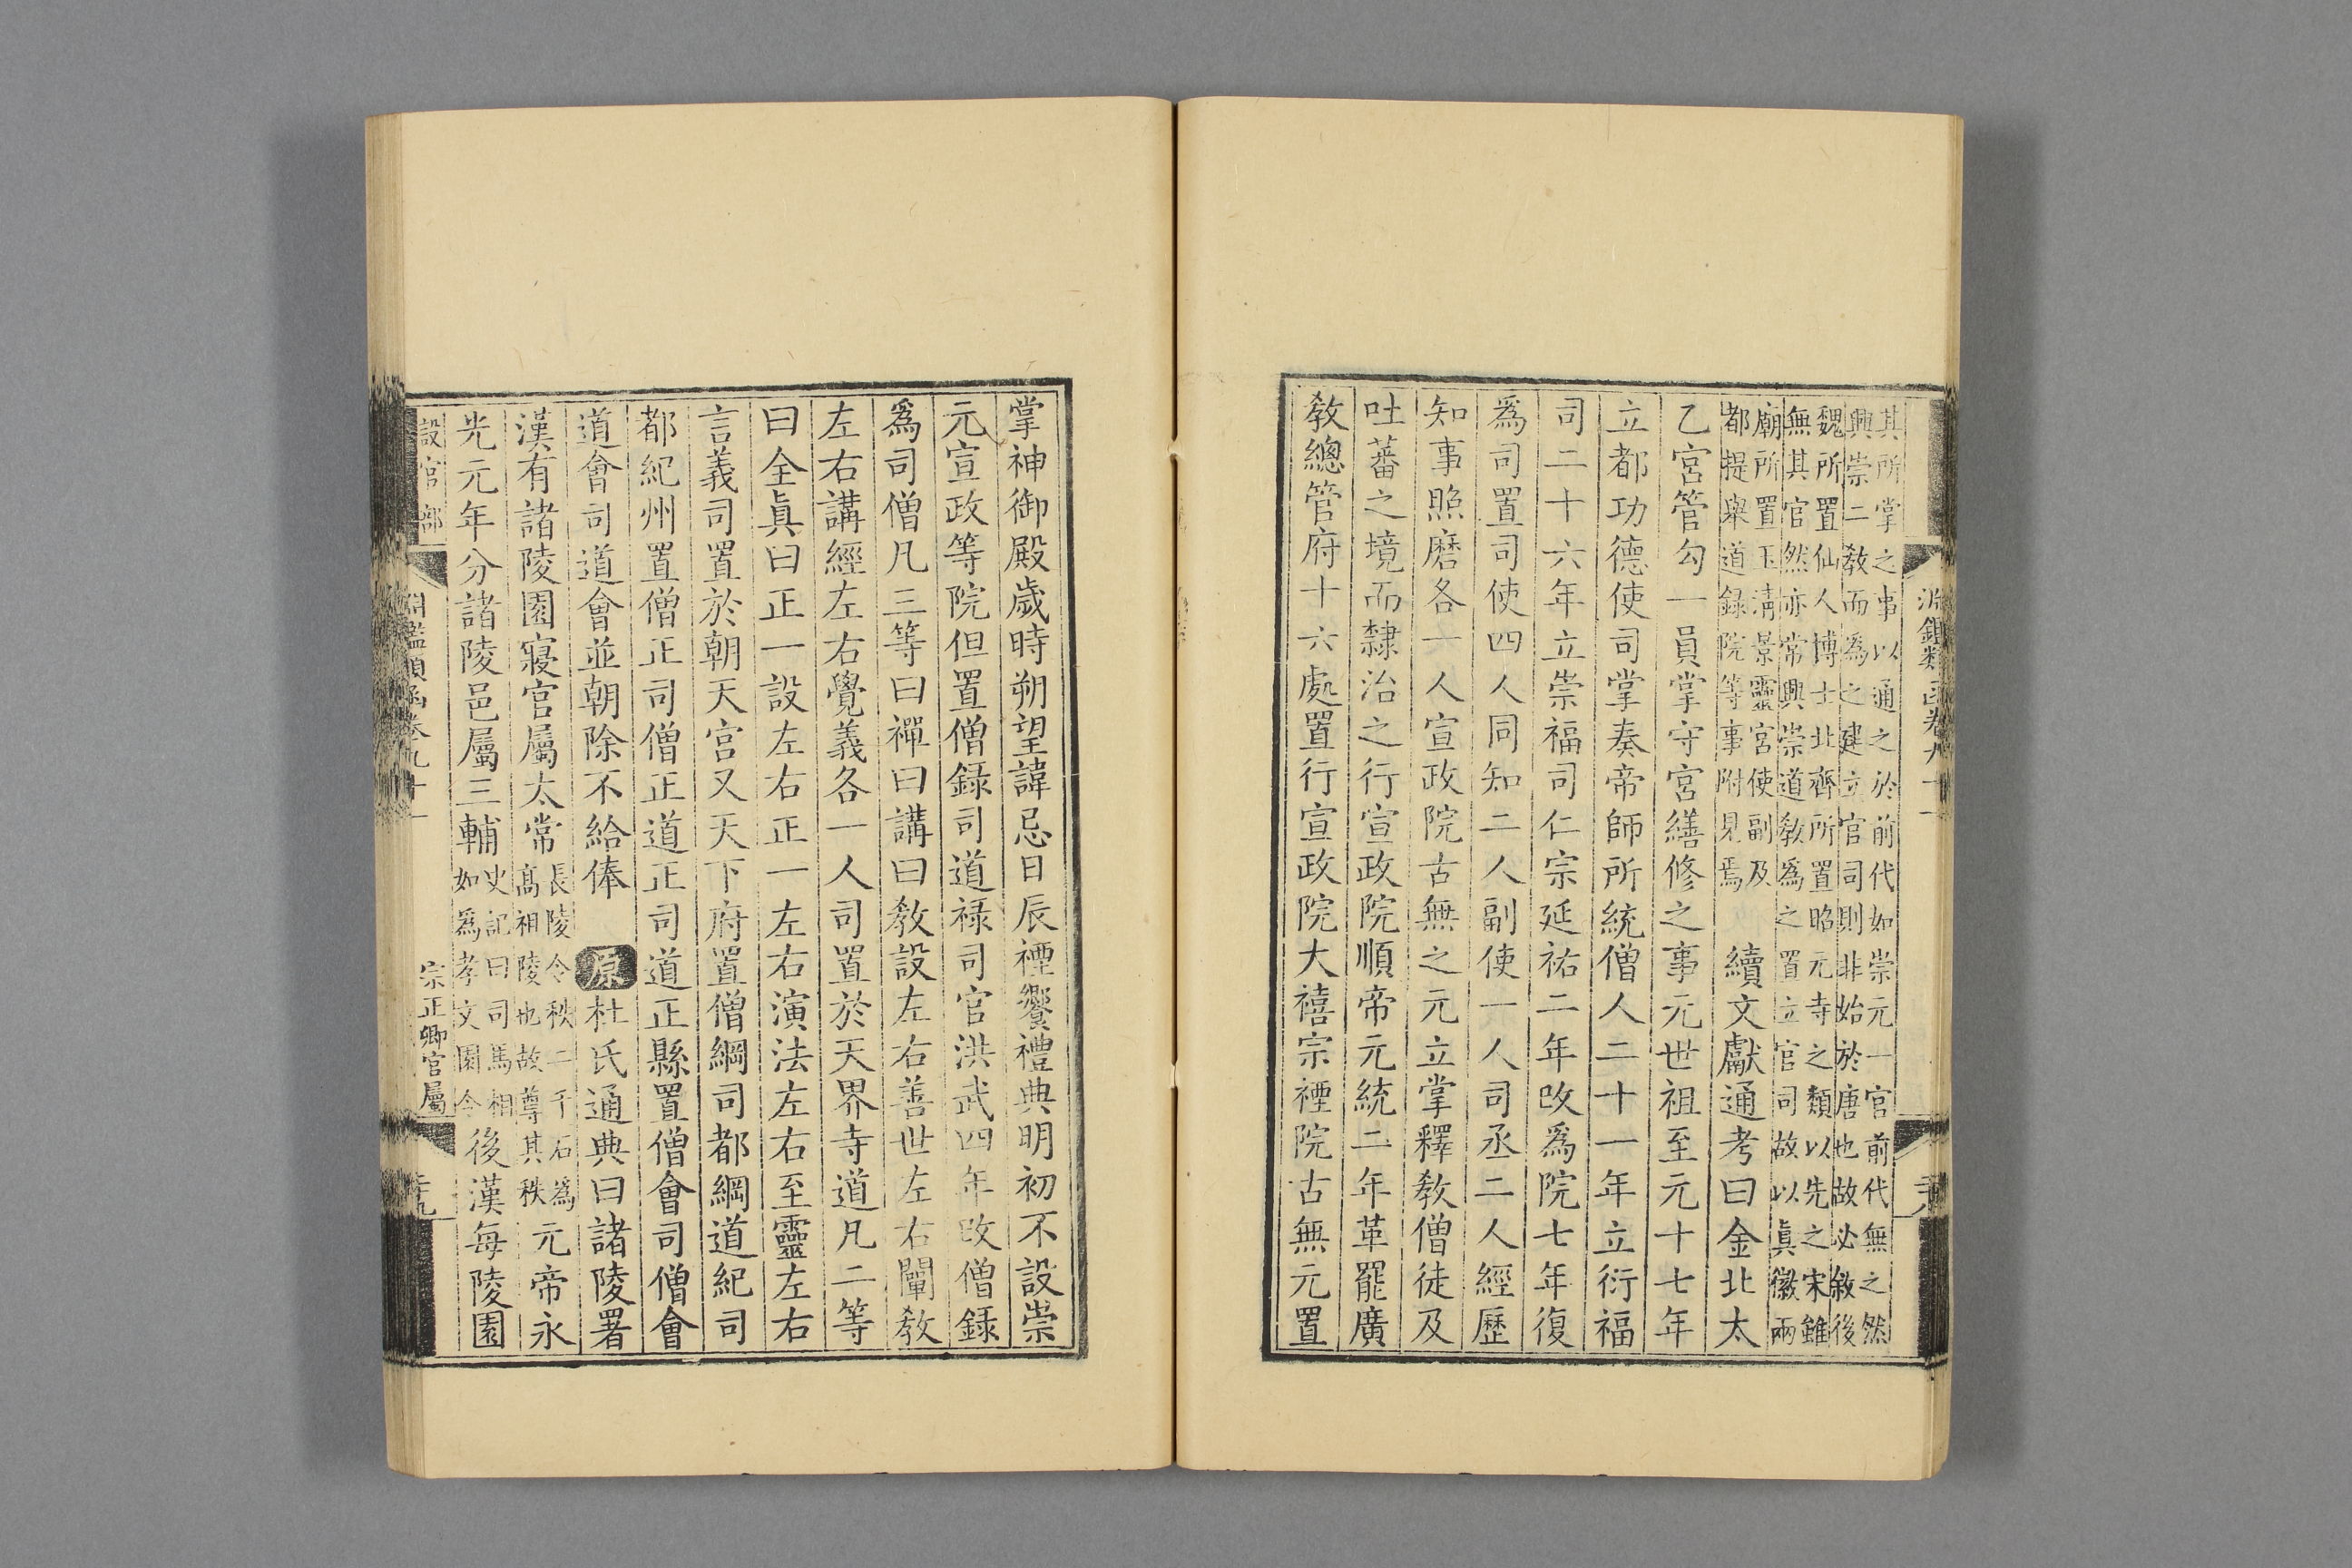 淵鑑類函卷九十一
其所掌之事以通之於前代如崇元一官前代無之然
興崇二敎而爲之建立官司則非始於唐也故必敘後
魏所置仙人博士北齊所置昭元寺之類以先之宋雖
無其官然亦常興崇道敎爲之置立官司故以眞徽兩
廟所置玉淸景靈宮使副及
都提舉道錄院等事附見焉
續文獻通考曰金北太
乙宮管勾一員掌守宮繕修之事元世祖至元十七年
立都功德使司掌奏帝師所統僧人二十一年立衍福
司二十六年立崇福司仁宗延祐二年改爲院七年復
爲司置司使四人同知二人副使一人司丞二人經歷
知事照磨各一人宣政院古無之元立掌釋敎僧徒及
吐蕃之境而隸治之行宣政院順帝元統二年革罷廣
敎總管府十六處置行宣政院大禧宗禋院古無元置
掌神御殿歲時朔望諱忌日辰禋饗禮典明初不設崇
元宣政等院但置僧錄司道祿司官洪武四年改僧錄
爲司僧凡三等曰禪曰講曰敎設左右善世左右闡敎
左右講經左右覺義各一人司置於天界寺道凡二等
曰全眞曰正一設左右正一左右演法左右至靈左右
言義司置於朝天宮又天下府置僧綱司都綱道紀司
都紀州置僧正司僧正道正司道正縣置僧會司僧會
道會司道會並朝除不給俸 原杜氏通典曰諸陵署
漢有諸陵園寢官屬太常
長陵令秩二千石爲
高祖陵也故尊其秩
元帝永
先元年分諸陵邑屬三輔
史記曰司馬相
如爲孝文園令
後漢每陵園
設官部
淵鑑類函卷九十一
宗正卿官屬